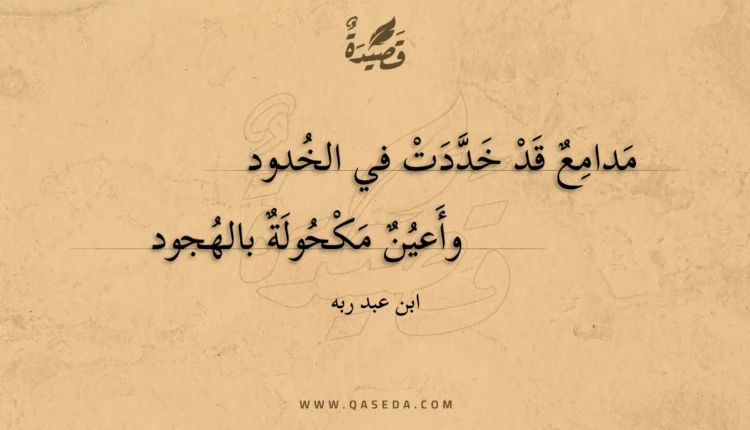 قَصِيْدَةٌ
مَدامِعٌ قَدْ خَدَّدَتْ في الخُدود
وأَعيُنٌ مَكْحُولَةٌ بالهُجود
ابن عبد ربه
WWW.QASEDA.COM